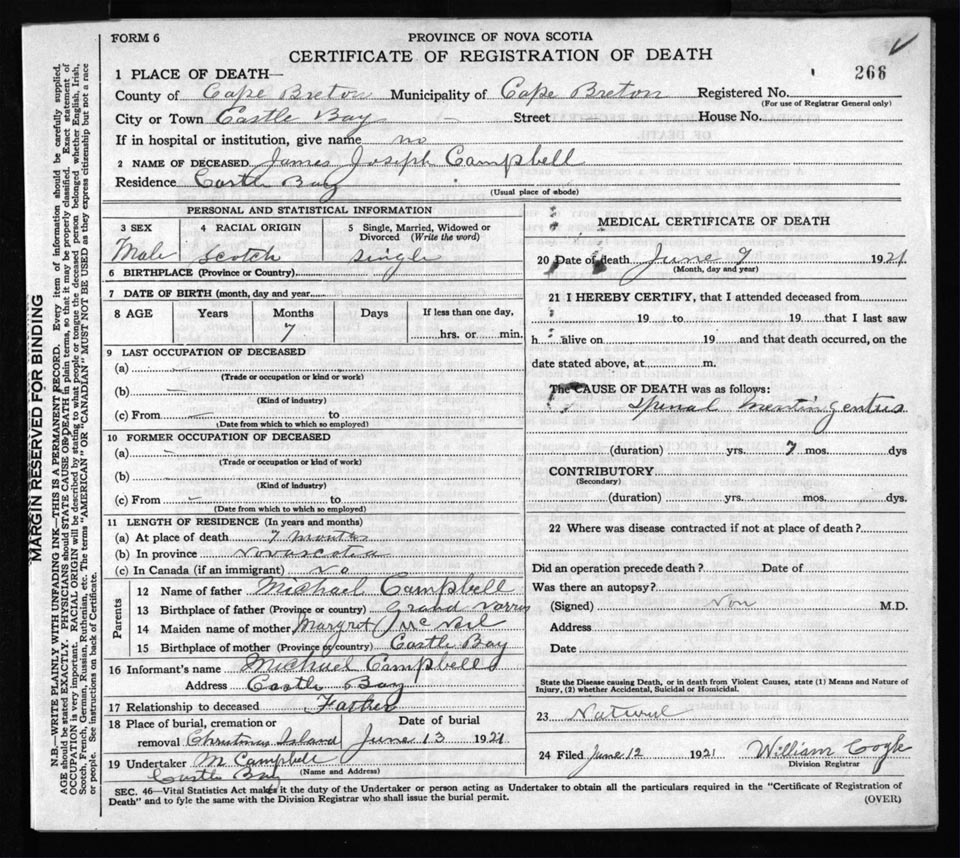 FORM 6
PROVINCE OF NOVA SCOTIA
CERTIFICATE OF REGISTRATION OF DEATH
266
1 PLACE OF DEATH—
County of Cape Breton Municipality of Cape Breton Registered No.
(For use of Registrar General only)
City or Town Castle Bay Street House No.
If in hospital or institution, give name no
2 NAME OF DECEASED James Joseph Campbell
Residence Castle Bay
(Usual place of abode)
PERSONAL AND STATISTICAL INFORMATION
3 SEX 4 RACIAL ORIGIN 5 Single, Married, Widowed or Divorced (Write the word)
Male Scotch Single
6 BIRTHPLACE (Province or Country)
7 DATE OF BIRTH (month, day and year
8 AGE Years Months Days If less than one day,
7 hrs. or min.
9 LAST OCCUPATION OF DECEASED
(a)
(Trade or occupation or kind of work)
(b)
(Kind of industry)
(c) From to
(Date from which to which so employed)
10 FORMER OCCUPATION OF DECEASED
(a)
(Trade or occupation or kind of work)
(b)
(Kind of industry)
(c) From to
(Date from which to which so employed)
11 LENGTH OF RESIDENCE (In years and months)
(a) At place of death 7 months
(b) In province Novascotia
(c) In Canada (if an immigrant) No
Parents
12 Name of father Michael Campbell
13 Birthplace of father (Province or country) Grand Narrws
14 Maiden name of mother Margret McNeil
15 Birthplace of mother (Province or country) Castle Bay
16 Informant's name Michael Campbell
Address Castle Bay
17 Relationship to deceased Father
18 Place of burial, cremation or removal Christmas Island
Date of burial June 13 1921
19 Undertaker M Campbell
Castle Bay (Name and Address)
MEDICAL CERTIFICATE OF DEATH
20 Date of death June 9 1921
(Month, day and year)
21 I HEREBY CERTIFY, that I attended deceased from
19 to 19 that I last saw
h alive on 19 and that death occurred, on the
date stated above, at m.
The CAUSE OF DEATH was as follows:
Spinal
(duration) yrs. 7 mos. dys
CONTRIBUTORY
(Secondary)
(duration) yrs. mos. dys.
22 Where was disease contracted if not at place of death?
Did an operation precede death? Date of
Was there an autopsy?
(Signed) Non M.D.
Address
Date
State the Disease causing Death, or in death from Violent Causes, state (1) Means and Nature of
Injury, (2) whether Accidental, Suicidal or Homicidal.
23 Naturul
24 Filed June 12 1921 William
Division Registrar
SEC. 46—Vital Statistics Act makes it the duty of the Undertaker or person acting as Undertaker to obtain all the particulars required in the "Certificate of Registration of
Death" and to fyle the same with the Division Registrar who shall issue the burial permit.
(OVER)
MARGIN RESERVED FOR BINDING
N.B.—WRITE PLAINLY WITH UNFADING INK—THIS IS A PERMANENT RECORD. Every item of information should be carefully supplied.
AGE should be stated EXACTLY. PHYSICIANS should STATE CAUSE OF DEATH in plain terms, so that it may be properly classified. Exact statement of
OCCUPATION is very important. RACIAL ORIGIN will be described by stating to what people or tongue the deceased person belonged whether English, Irish,
Scotch, French, German, Russian, Ruthenian, etc. The terms "AMERICAN" OR "CANADIAN" MUST NOT BE USED as they express citizenship but not a race
or people. See instructions on back of Certificate.